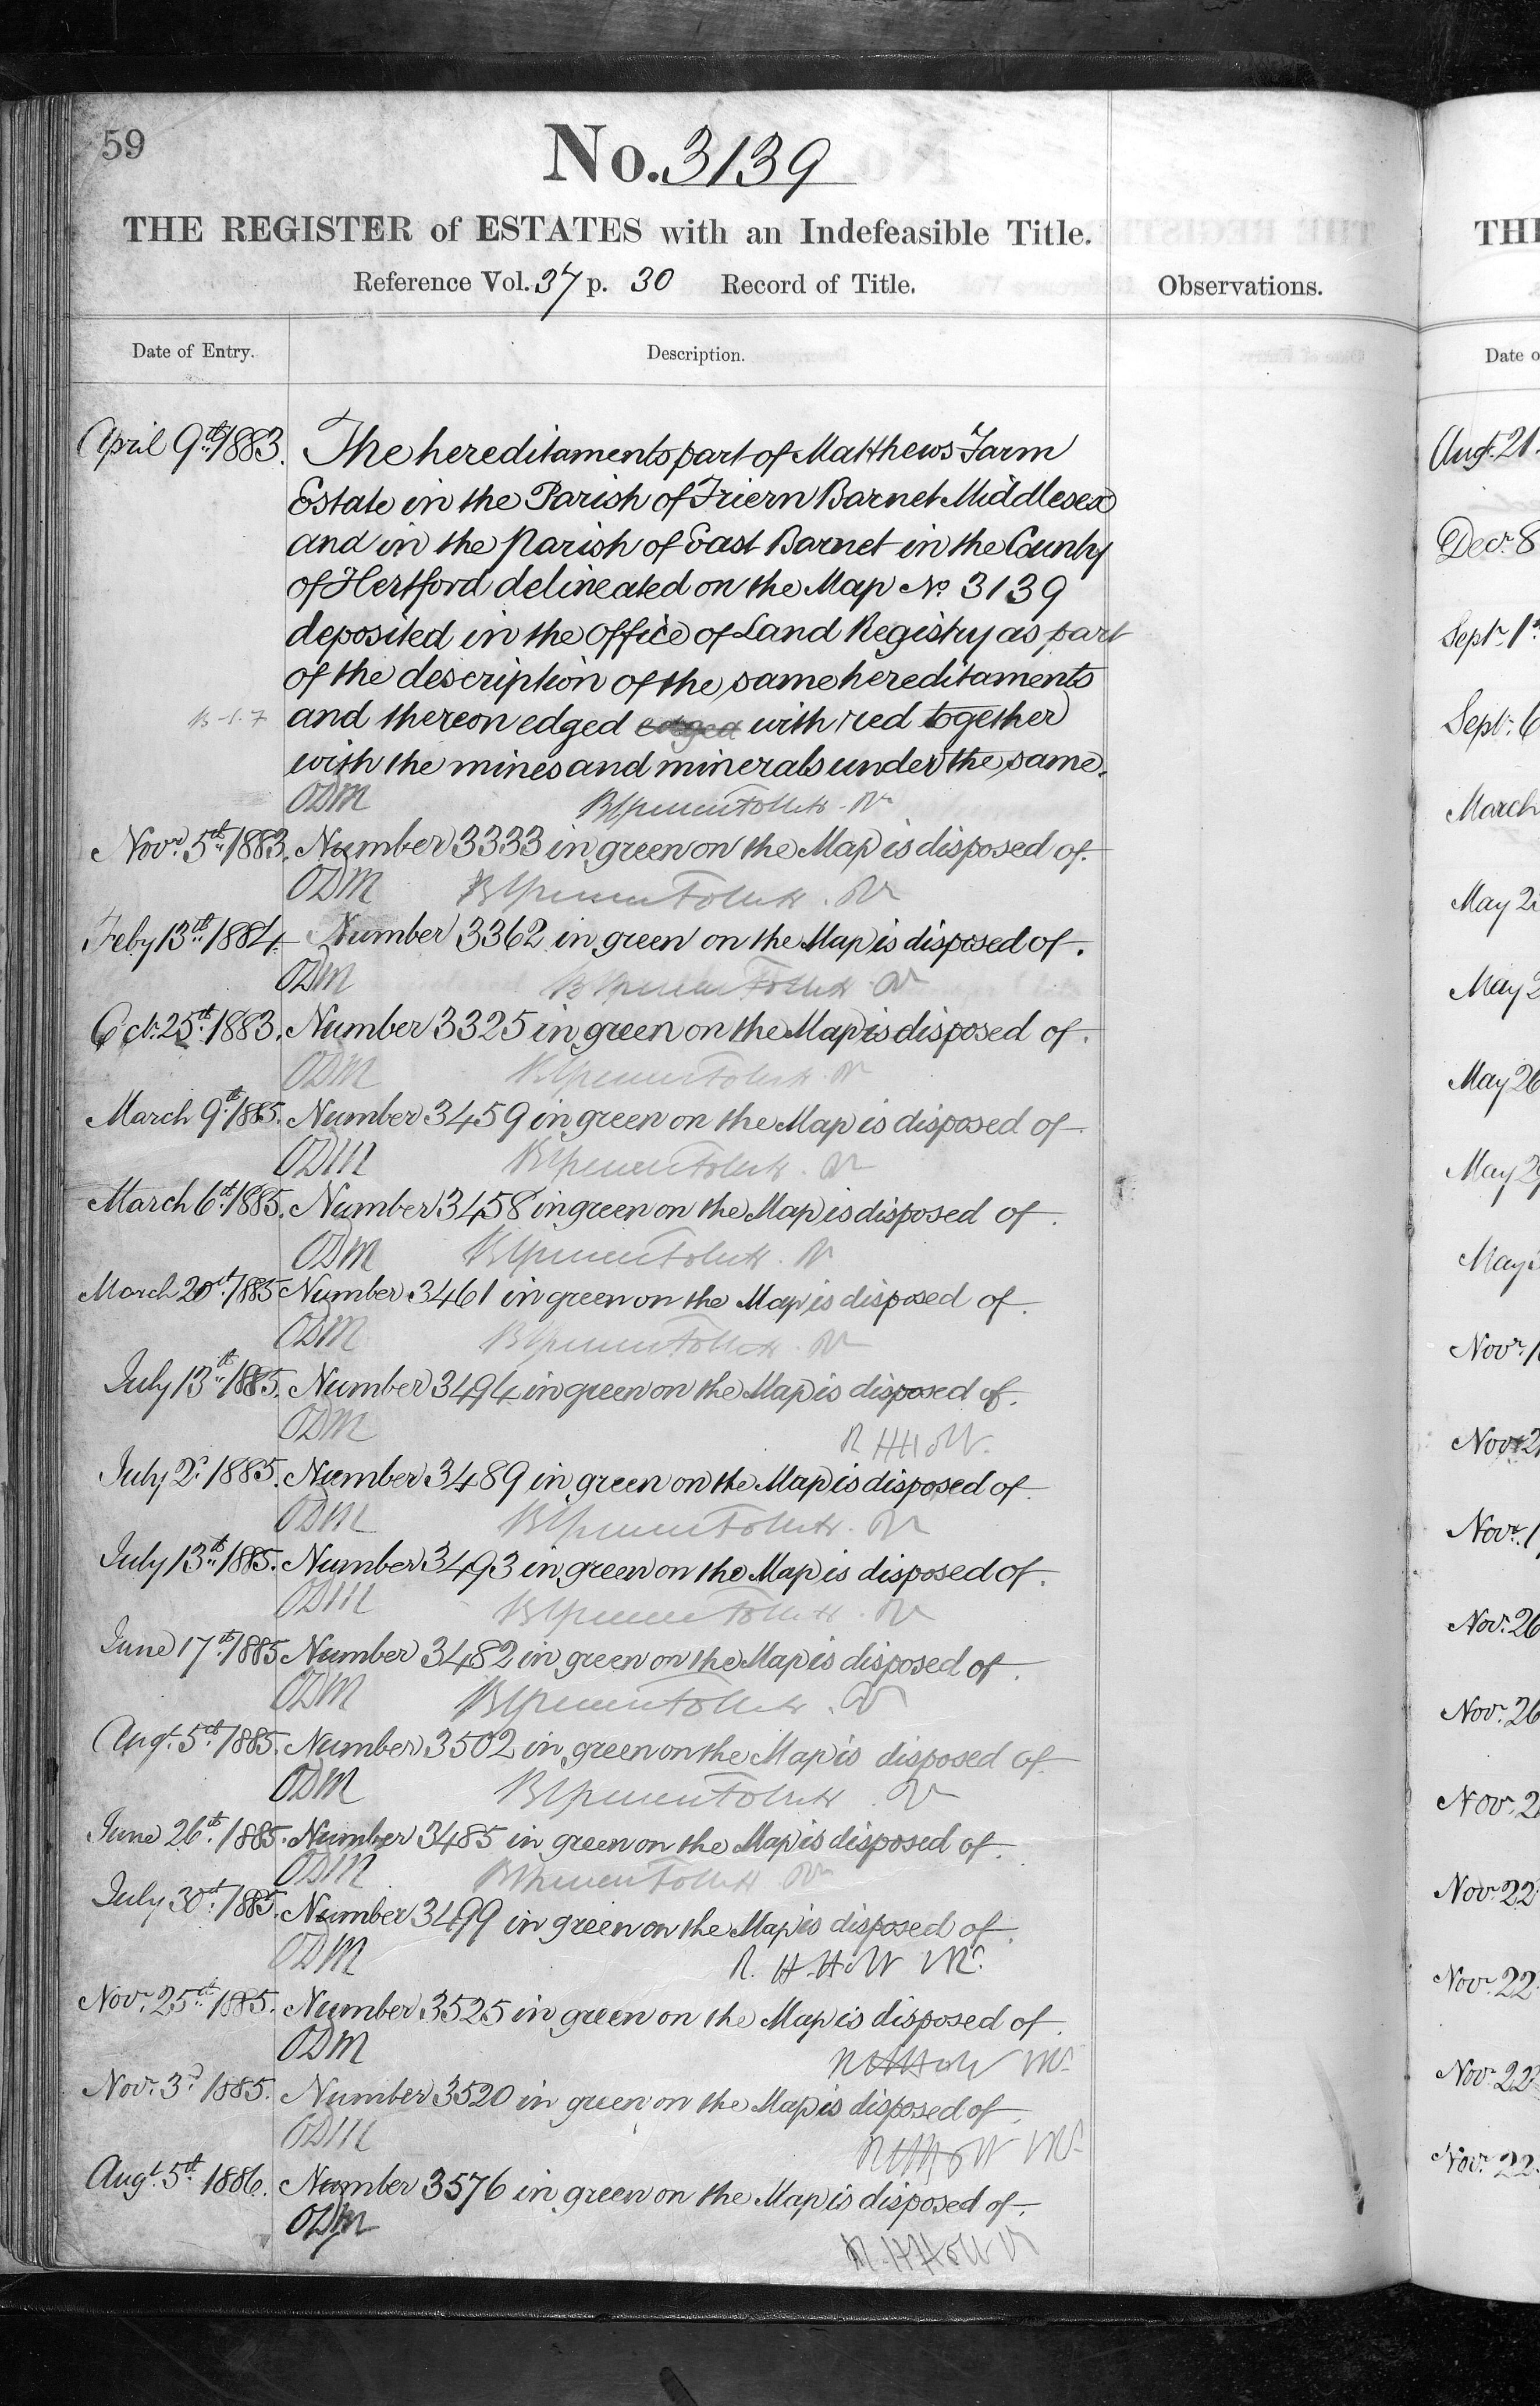 59
No. 3139
THE REGISTER of ESTATES with an Indefeasible Title.
Reference Vol. 37 p. 30 Record of Title.
Observations.
Date of Entry.
Description.
April 9th 1883. The hereditaments part of Matthews Farm
Estate in the Parish of Friern Barnet Middlesex
and in the Parish of East Barnet in the County
of Hertford delineated on the Map No 3139
deposited in the office of Land Registry as part
of the description of the same hereditaments
and thereon edged edged with red together
with the mines and minerals under the same.
ODM
Novr. 5th 1883. Number 3333 in green on the Map is disposed of.
ODM
Feby 13th 1884 Number 3362 in green on the Map is disposed of.
ODM
Oct. 25th 1883. Number 3325 in green on the Map is disposed of.
ODM
March 9th 1885. Number 3459 in green on the Map is disposed of
ODM
March 6th 1885. Number 3458 in green on the Map is disposed of.
ODM
March 20th 1885 Number 3461 in green on the Map is disposed of.
ODM
July 13th 1885. Number 3494 in green on the Map is disposed of.
ODM
July 2d 1885. Number 3489 in green on the Map is disposed of.
ODM
July 13th 1885. Number 3493 in green on the Map is disposed of.
ODM
June 17th 1885 Number 3482 in green on the Map is disposed of.
ODM
Augt. 5th 1885. Number 3502 in green on the Map is disposed of.
ODM
June 26th 1885. Number 3485 in green on the Map is disposed of.
ODM
July 30th 1885. Number 3499 in green on the Map is disposed of.
ODM R. H. Holt
Novr. 25th 1885. Number 3525 in green on the Map is disposed of.
ODM
Novr. 3d 1885. Number 3520 in green on the Map is disposed of.
ODM
Augt. 5th 1886. Number 3576 in green on the Map is disposed of.
ODM
THE
Date o
Augt. 21.
Decr. 8
Septr. 1st
Septr. 6
March
May 2
May 2
May 26
May 29
May
Novr. 1
Novr. 2
Novr. 1
Novr. 26
Novr. 26
Novr. 2
Novr. 22
Novr. 22
Novr. 22
Novr. 22